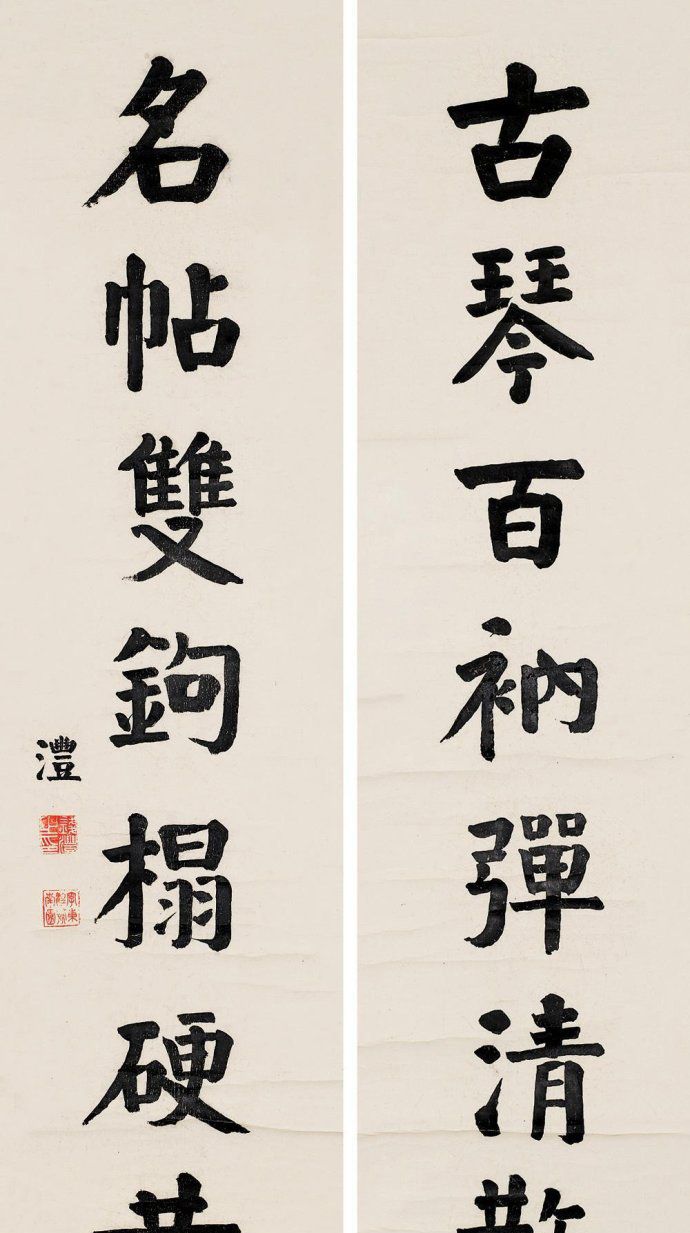 古琴百衲彈清散
名帖雙鉤榻硬黃
澧